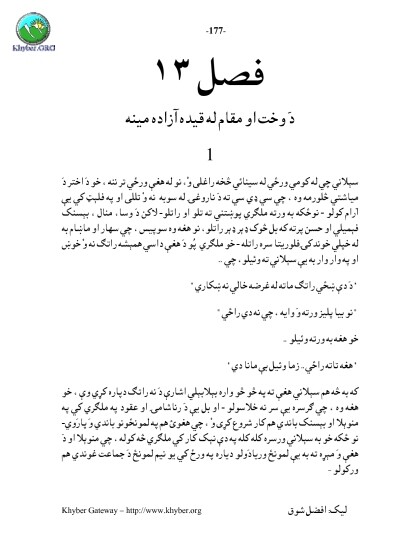 -177-
Khyber.ORG
فصل ۱۳
دَ وخت او مقام له قيده آزاده مينه
1
سېلاني چي له کومي ورځي له سينائي څخه راغلی وُ، نو له هغې ورځي تر ننه ، خو دَ اختر دَ
مياشتي څلورمه وه ، چي سي ډي سي ته دَ ناروغۍ له سوبه نه وُ تللی او په فلېټ کي يې
آرام کولو - نو ځکه به ورته ملگري پوښتني ته تلو او راتلو - لاکن دَ وسا ، منال ، بېسنک
فېميلي او حسن پرته که بل څوک ډېر ډېر راتلو، نو هغه وه سوپيس ، چي سهار او ماښام به
له خپلي خوندکی فلوريتا سره راتله - خو ملگري يُو دَ هغې داسي همېشه راتگ نه وُ خوښ
او په وار وار به يې سېلاني ته وئيلو ، چي ..
"دَ دې ښځي راتگ ما ته له غرضه خالي نه ښکاري"
"نو بيا پليز ورته وَ وايه ، چي نه دي راځي"
خو هغه به ورته وئيلو ..
"هغه تا ته راځي.. زما وئيل بې مانا دي"
که به څه هم سېلاني هغې ته په څو څو واره ببلاببلي اشارې دَ نه راتگ دپاره کړي وې ، خو
هغه وه ، چي گرسره يې سر نه خلاسولو - او بل يې دَ رناشامۍ او عقود په ملگري کي په
منوېلا او بېسنک باندي هم کار شروع کړی وُ ، چي هغوئ هم په لموئځونو باندي وَ پاروَي-
نو ځکه خو به سېلاني ورسره کله کله په دې نېک کار کي ملگري څه کوله ، چي منوېلا او دَ
هغې دَ مېړه ته به يې لمونځ ورياَدولو دپاره په ورځ کي يو نيم لمونځ دَ جماعت غوندي هم
ورکولو -
Khyber Gateway – http://www.khyber.org
ليک: افضل شوق